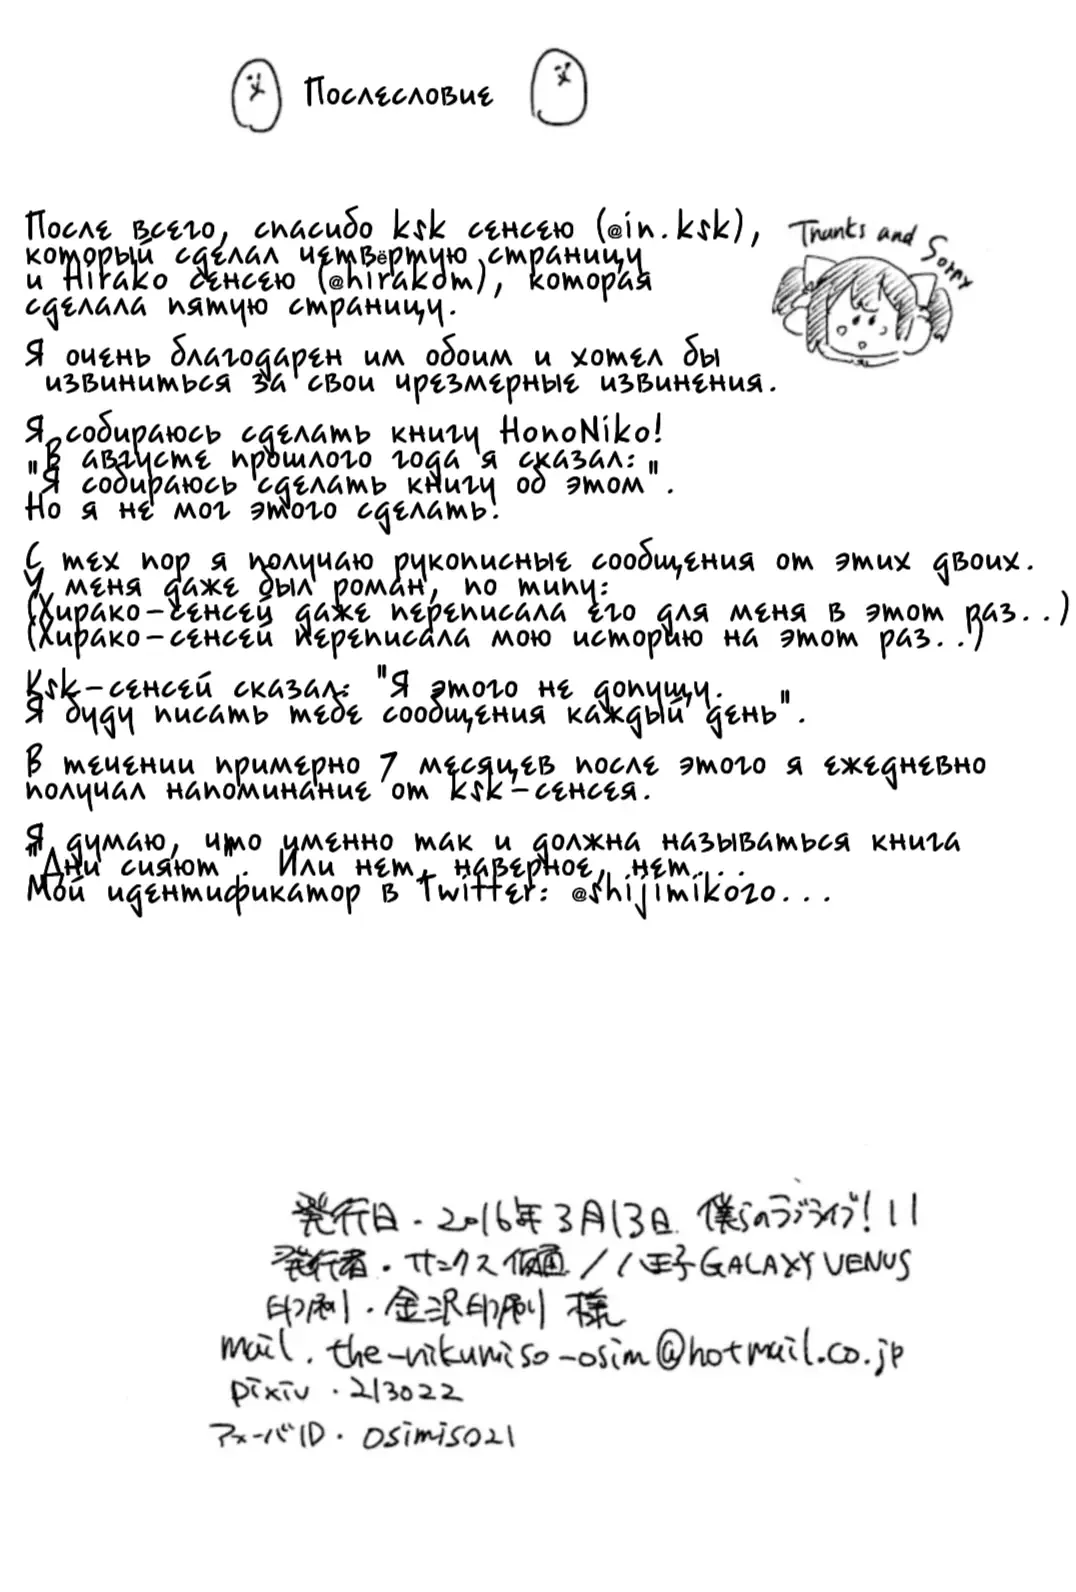 Послесловие
После всего, спасибо ksk сенсею (@in.ksk),
который сделал четвёртую страницу
и Hirako сенсею (@hirakom), которая
сделала пятую страницу.
Thanks and Sorry
Я очень благодарен им обоим и хотел бы
извиниться за свои чрезмерные извинения.
Я собираюсь сделать книгу HonoNiko!
"В августе прошлого года я сказал:
"Я собираюсь сделать книгу об этом".
Но я не мог этого сделать!
С тех пор я получаю рукописные сообщения от этих двоих.
У меня даже был роман, по типу:
(Хирако-сенсей даже переписала его для меня в этот раз..)
(Хирако-сенсей переписала мою историю на этот раз..)
Ksk-сенсей сказал: "Я этого не допущу.
Я буду писать тебе сообщения каждый день".
В течении примерно 7 месяцев после этого я ежедневно
получал напоминание от ksk-сенсея.
Я думаю, что именно так и должна называться книга
"Дни сияют". Или нет, наверное, нет...
Мой идентификатор в Twitter: @shijimikozo...
発行日・2016年3月13日 僕らのラブライブ!11
発行者・サンクス仮面/八王子GALAXY VENUS
印刷・金沢印刷 様
mail. the-nikumiso-osim@hotmail.co.jp
pixiv・213022
アメーバID・osimiso21